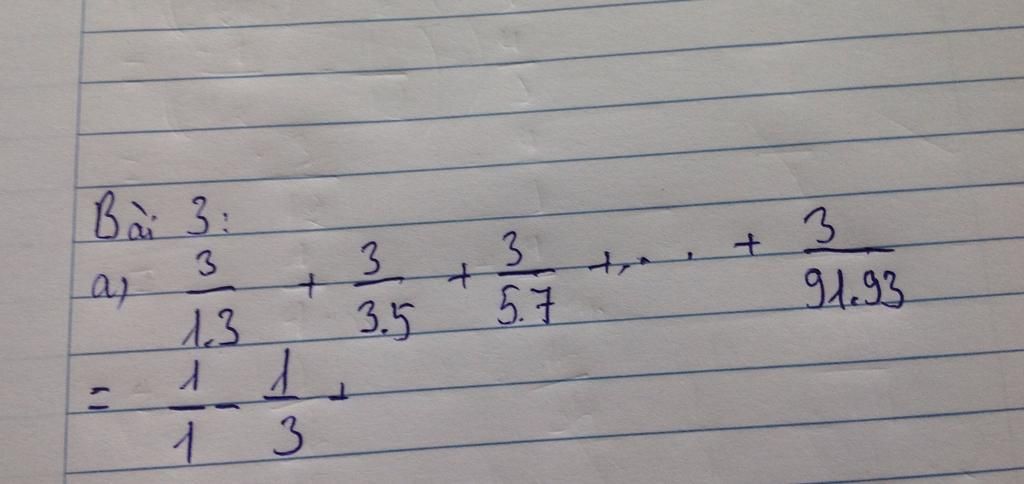 Bài 3:
a) 3/1.3 + 3/3.5 + 3/5.7 + ... + 3/91.93
= 1/1 - 1/3 +